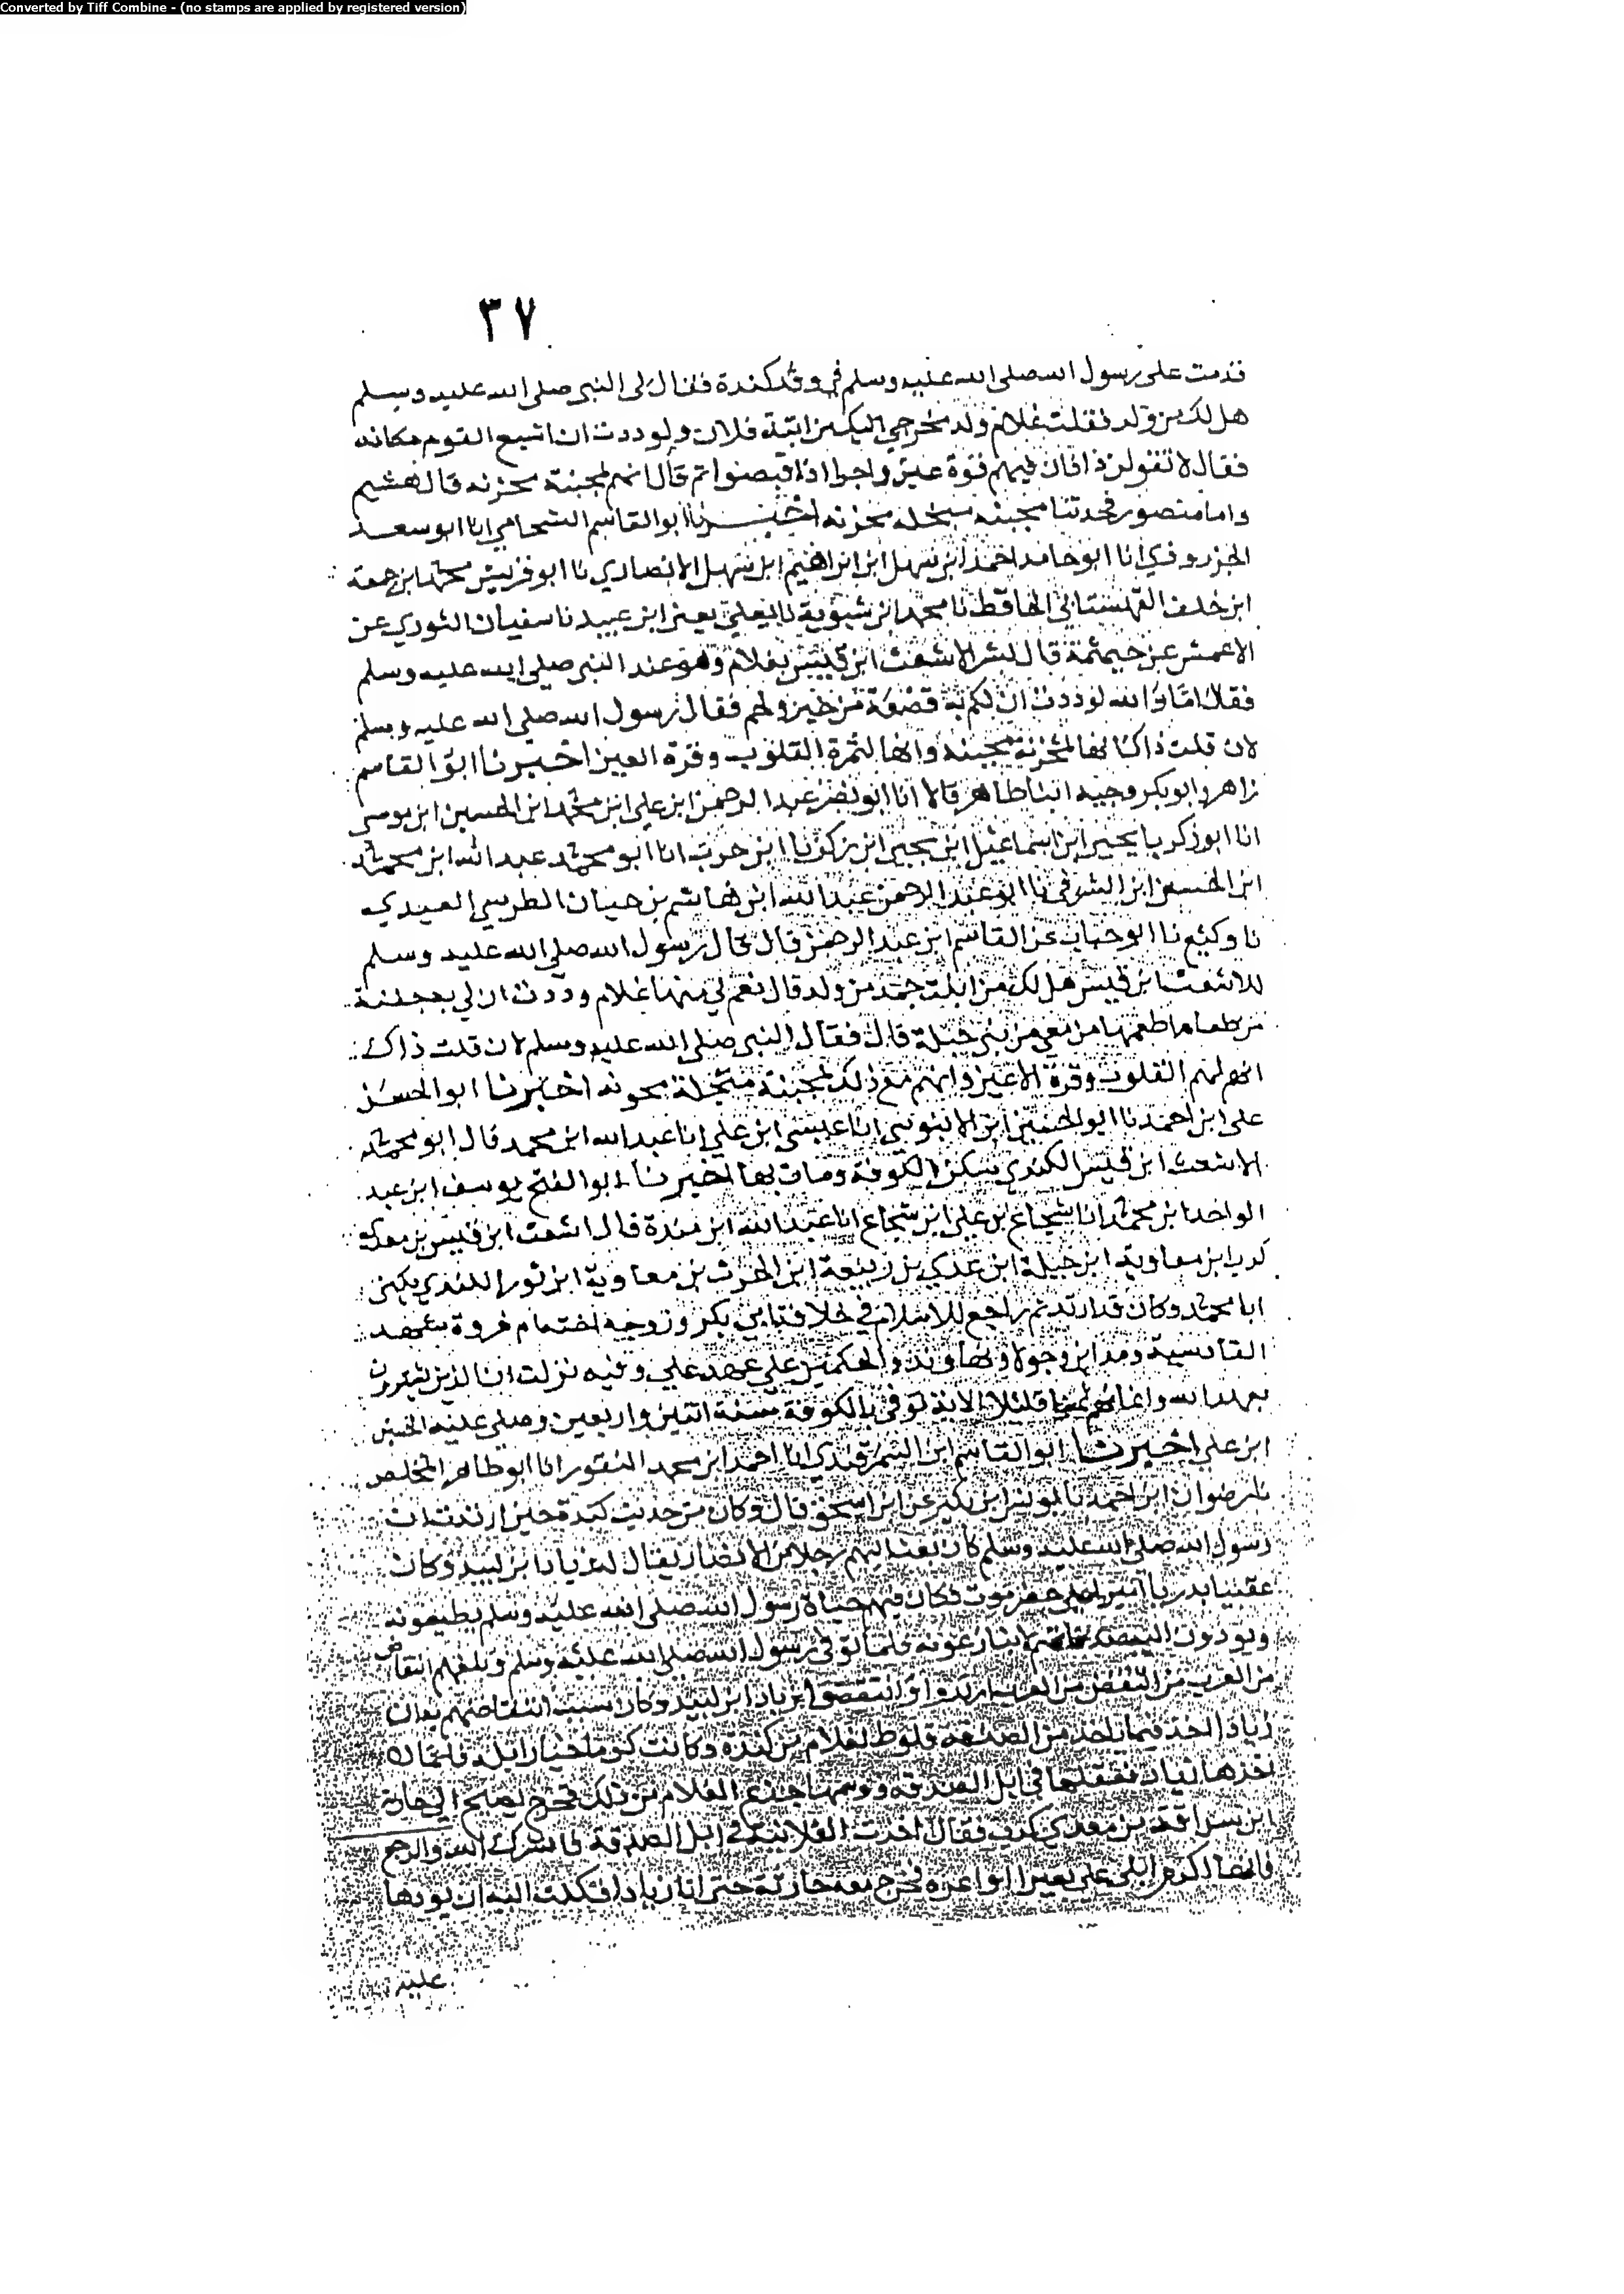 Converted by Tiff Combine - (no stamps are applied by registered version)
٣٧
قدمت على رسول الله صلى الله عليه وسلم في وفد كندة فقال لى النبي صلى الله عليه وسلم
هل لك من ولد فقلت غلام ولد مخرجي اليك من ابنة فلان ولوددت ان اشبع القوم مكانه
فقال لا تقولن ذا فان فيهم قوة عين واجرا اذا قبضوا ثم قال انهم لمجبنة محزنه قال هشيم
واما منصور فحدثنا مجبنه مبخله محزنه اخبرنا ابو القاسم الشحامي انا ابو سعد
الجزرودي انا ابو حامد احمد ابن سهل ابن ابراهيم ابن سهل الانصاري نا ابو قريش محمد ابن جمعة
ابن خلف القهستاني الحافظ نا محمد ابن شبوية نا يعلي يعني ابن عبيد نا سفيان الثوري عن
الاعمش عن خيثمة قال بشر الاشعث ابن قيس بغلام وهو عند النبي صلى الله عليه وسلم
فقال اما والله لوددت ان لكم به قصعة من خبز ولحم فقال رسول الله صلى الله عليه وسلم
لان قلت ذاك انها لمحزنة مجبنه وانها لثمرة القلوب وقرة العين اخبرنا ابو القاسم
زاهر وابو بكر وجيه ابنا طاهر قالا انا ابو نصر عبد الرحمن ابن علي ابن محمد ابن الحسين ابن موسى
انا ابو زكريا يحيى ابن اسماعيل ابن يحيى ابن زكريا ابن حرب انا ابو محمد عبد الله ابن محمد
ابن الحسن ابن الشرقي نا ابو عبد الرحمن عبد الله ابن هاشم بن حيان الطوسي العبدي
نا وكيع نا ابو جناب عن القاسم ابن عبد الرحمن قال قال رسول الله صلى الله عليه وسلم
للاشعث ابن قيس هل لك من ابنة جمد من ولد قال نعم لي منها غلام وددت ان لي بجفنة
من طعام اطعمها من معي من بني جبلة قال فقال النبي صلى الله عليه وسلم لان قلت ذاك
انهم لثمر القلوب وقرة الاعين وانهم مع ذلك لمجبنة مبخلة محزنه اخبرنا ابو الحسن
على ابن احمد نا ابو الحسين ابن الابنوسي انا عيسى ابن علي انا عبد الله ابن محمد قال ابو محمد
الاشعث ابن قيس الكندي سكن الكوفة ومات بها اخبرنا ابو الفتح يوسف ابن عبد
الواحد ابن محمد انا شجاع ابن علي ابن شجاع انا عبد الله ابن مندة قال اشعث ابن قيس بن معدي
كرب ابن معاوية ابن جبلة ابن عدي بن ربيعة ابن الحرث بن معاوية ابن ثور الكندي يكنى
ابا محمد وكان قد ارتد ثم راجع للاسلام في خلافة ابي بكر وزوجه اخته ام فروة شهد
القادسية ومداين وجولا ونهاوند والحكمين على عهد علي وفيه نزلت ان الذين يشترون
بعهد الله وايمانهم ثمنا قليلا الاية توفي بالكوفة سنة اثنين واربعين وصلى عليه الحسن
ابن علي اخبرنا ابو القاسم ابن السمرقندي انا احمد ابن محمد النقور انا ابو طاهر المخلص
نا رضوان ابن احمد نا يونس ابن بكير عن ابن اسحق قال وكان من حديث كندة حين ارتدت ان
رسول الله صلى الله عليه وسلم كان بعث اليهم رجلا من الانصار يقال له زياد ابن لبيد وكان
عقبيا بدريا حضرموت فكان فيهم حياة رسول الله صلى الله عليه وسلم يطيعونه
ويودون اليه لا ينازعونه فلما توفي رسول الله صلى الله عليه وسلم وبلغهم انتقاض
من العرب من انتقض من العرب ارتدوا وانتقضوا بزياد ابن لبيد وكان سبب انتقاضهم به ان
زياد اخذ فيما ياخذ من الصدقة قلوصا لغلام من كندة وكانت كوما خيار ابله فلما
اخذها زياد فعقلها في ابل الصدقة ووسمها جزع الغلام من ذلك فخرج يصيح الى حارثة
ابن سراقة بن معدي كرب فقال اخذت الفلانية في ابل الصدقة فانشدك الله والرحم
فانها اكرم ابلي علي بعيرا فخرج معه حارثة حتى اتا زيادا فكلمه اليه ان يردها
عليه